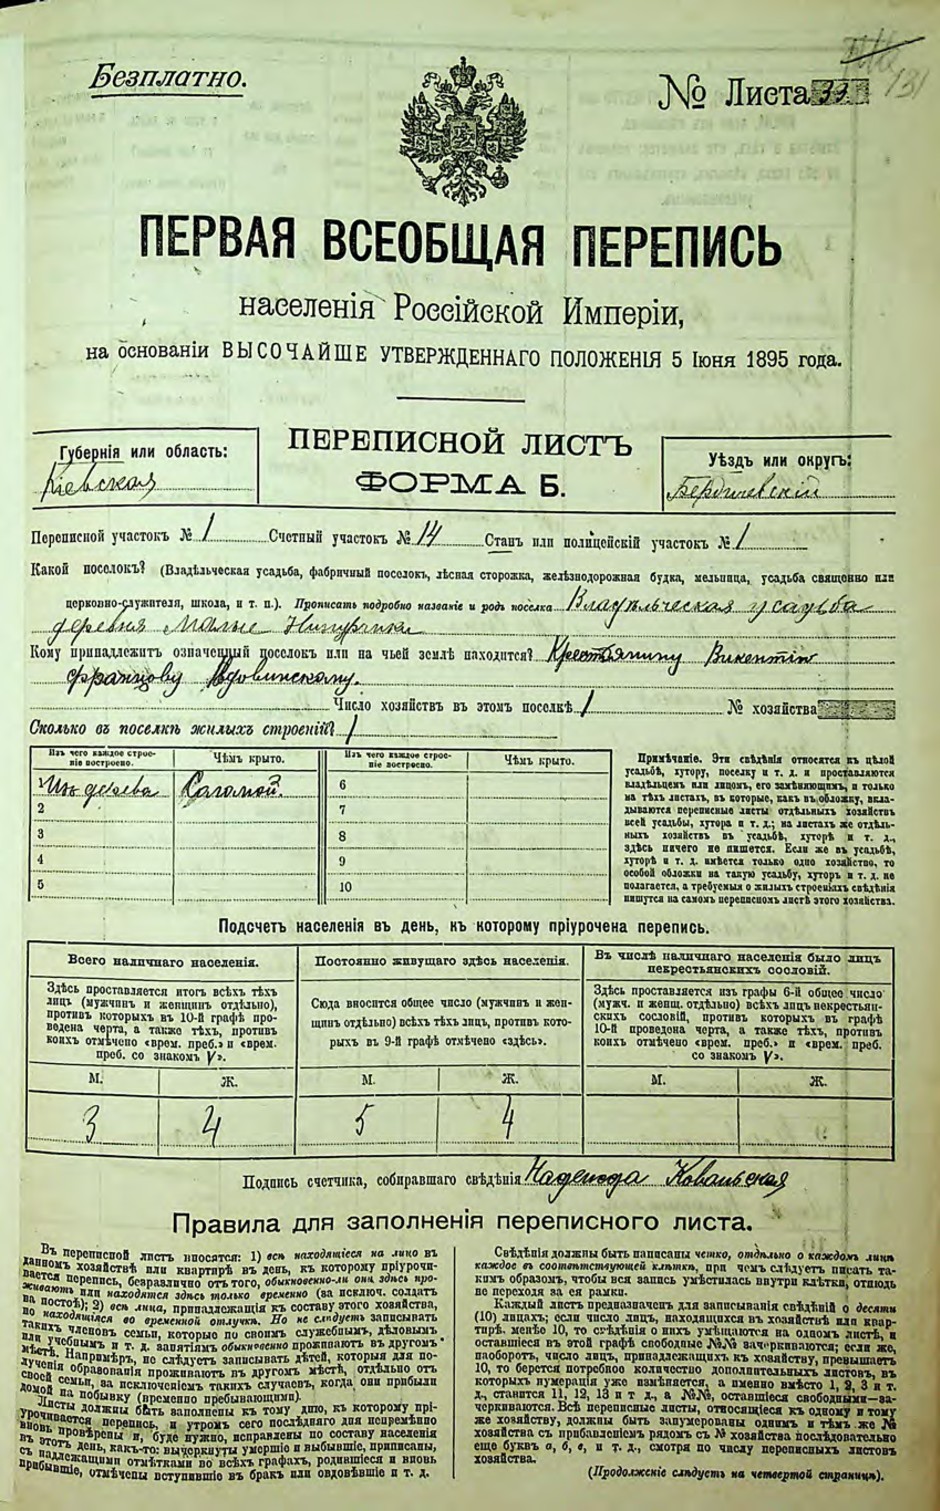 Безплатно.
№ Листа 33
131
ПЕРВАЯ ВСЕОБЩАЯ ПЕРЕПИСЬ
населенія Россійской Имперіи,
на основаніи ВЫСОЧАЙШЕ УТВЕРЖДЕННАГО ПОЛОЖЕНІЯ 5 Іюня 1895 года.
Губернія или область:
Кіевская
ПЕРЕПИСНОЙ ЛИСТЪ
ФОРМА Б.
Уѣздъ или округъ:
Бердичевскій
Переписной участокъ № 1 Счетный участокъ № 14 Станъ или полицейскій участокъ № 1
Какой поселокъ? (Владѣльческая усадьба, фабричный поселокъ, лѣсная сторожка, желѣзнодорожная будка, мельница, усадьба священно или
церковно-служителя, школа, и т. п.). Прописать подробно названіе и родъ поселка Владѣльческая усадьба
деревня Малые
Кому принадлежитъ означенный поселокъ или на чьей землѣ находится? Крестьянину Викентію
Францову
Число хозяйствъ въ этомъ поселкѣ 1 № хозяйства
Сколько въ поселкѣ жилыхъ строеній? 1
Изъ чего каждое строеніе построено.
Чѣмъ крыто.
Изъ чего каждое строеніе построено.
Чѣмъ крыто.
1 Изъ дерева Соломой. 6
2 7
3 8
4 9
5 10
Примѣчаніе. Эти свѣдѣнія относятся къ цѣлой
усадьбѣ, хутору, поселку и т. д. и проставляются
владѣльцемъ или лицомъ, его замѣняющимъ, и только
на тѣхъ листахъ, въ которые, какъ въ обложку, вкла-
дываются переписные листы отдѣльныхъ хозяйствъ
всей усадьбы, хутора и т. д.; на листахъ же отдѣль-
ныхъ хозяйствъ въ усадьбѣ, хуторѣ и т. д.,
здѣсь ничего не пишется. Если же въ усадьбѣ,
хуторѣ и т. д. имѣется только одно хозяйство, то
особой обложки на такую усадьбу, хуторъ и т. д. не
полагается, а требуемыя о жилыхъ строеніяхъ свѣдѣнія
пишутся на самомъ переписномъ листѣ этого хозяйства.
Подсчетъ населенія въ день, къ которому пріурочена перепись.
Всего наличнаго населенія.
Здѣсь проставляется итогъ всѣхъ тѣхъ
лицъ (мужчинъ и женщинъ отдѣльно),
противъ которыхъ въ 10-й графѣ про-
ведена черта, а также тѣхъ, противъ
коихъ отмѣчено «врем. преб.» и «врем.
преб. со знакомъ V».
Постоянно живущаго здѣсь населенія.
Сюда вносится общее число (мужчинъ и жен-
щинъ отдѣльно) всѣхъ тѣхъ лицъ, противъ кото-
рыхъ въ 9-й графѣ отмѣчено «здѣсь».
Въ числѣ наличнаго населенія было лицъ
некрестьянскихъ сословій.
Здѣсь проставляется изъ графы 6-й общее число
(мужч. и женщ. отдѣльно) всѣхъ лицъ некрестьян-
скихъ сословій, противъ которыхъ въ графѣ
10-й проведена черта, а также тѣхъ, противъ
коихъ отмѣчено «врем. преб.» и «врем. преб.
со знакомъ V».
М. Ж. М. Ж. М. Ж.
3 4 5 4
Подпись счетчика, собиравшаго свѣдѣнія Надежда Ковальская
Правила для заполненія переписного листа.
Въ переписной листъ вносятся: 1) всѣ находящіеся на лицо въ
данномъ хозяйствѣ или квартирѣ въ день, къ которому пріурочи-
вается перепись, безразлично отъ того, обыкновенно-ли они здѣсь про-
живаютъ или находятся здѣсь только временно (за исключ. солдатъ
на постоѣ); 2) всѣ лица, принадлежащія къ составу этого хозяйства,
но находящіеся во временной отлучкѣ. Но не слѣдуетъ записывать
такихъ членовъ семьи, которые по своимъ служебнымъ, дѣловымъ
или учебнымъ и т. д. занятіямъ обыкновенно проживаютъ въ другомъ
мѣстѣ. Напримѣръ, не слѣдуетъ записывать дѣтей, которыя для по-
лученія образованія проживаютъ въ другомъ мѣстѣ, отдѣльно отъ
своей семьи, за исключеніемъ такихъ случаевъ, когда они прибыли
домой на побывку (временно пребывающими).
Листы должны быть заполнены къ тому дню, къ которому прі-
урочивается перепись, и утромъ сего послѣдняго дня непремѣнно
вновь провѣрены и, буде нужно, исправлены по составу населенія
въ этотъ день, какъ-то: вычеркнуты умершіе и выбывшіе, приписаны,
съ надлежащими отмѣтками во всѣхъ графахъ, родившіеся и вновь
прибывшіе, отмѣчены вступившіе въ бракъ или овдовѣвшіе и т. д.
Свѣдѣнія должны быть написаны четко, отдѣльно о каждомъ лицѣ
каждое въ соотвѣтствующей клѣткѣ, при чемъ слѣдуетъ писать та-
кимъ образомъ, чтобы вся запись умѣстилась внутри клѣтки, отнюдь
не переходя за ея рамки.
Каждый листъ предназначенъ для записыванія свѣдѣній о десяти
(10) лицахъ; если число лицъ, находящихся въ хозяйствѣ или квар-
тирѣ, менѣе 10, то свѣдѣнія о нихъ умѣщаются на одномъ листѣ, и
оставшіеся въ этой графѣ свободные №№ зачеркиваются; если же,
наоборотъ, число лицъ, принадлежащихъ къ хозяйству, превышаетъ
10, то берется потребное количество дополнительныхъ листовъ, въ
которыхъ нумерація уже измѣняется, а именно вмѣсто 1, 2, 3 и т.
д., ставится 11, 12, 13 и т. д., а №№, оставшіеся свободными—за-
черкиваются. Всѣ переписные листы, относящіеся къ одному и тому
же хозяйству, должны быть занумерованы однимъ и тѣмъ же №
хозяйства съ прибавленіемъ рядомъ съ № хозяйства послѣдовательно
еще буквъ а, б, в, и т. д., смотря по числу переписныхъ листовъ
хозяйства.
(Продолженіе слѣдуетъ на четвертой страницѣ).